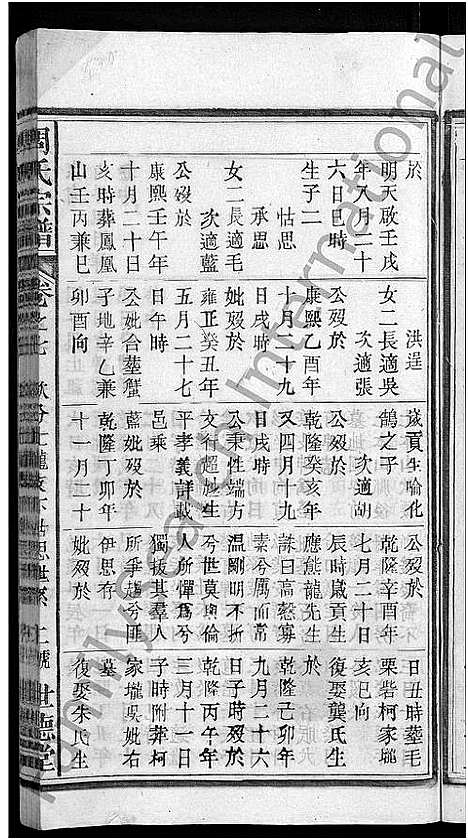 周氏宗譜
卷之七
世德堂
於
明天啟壬戌
年八月二十
六日巳時
生子二
怙思
承思
女二長適毛
次適藍
公歿於
康熙壬午年
十月二十日
亥時葬鳳凰
山壬丙兼巳
洪逞
女二長適吳
次適張
公歿於
康熙乙酉年
十月二十九
日戌時
妣歿於
雍正癸丑年
五月二十七
日午時
公妣合塟蟹
子地辛乙兼
卯酉向
歲貢生喻化
鵠之子
次適胡
公歿於
乾隆癸亥年
又四月十九
日戌時
公秉性端方
文行超施生
平孝義詳載
邑乘
藍妣歿於
乾隆丁卯年
十一月三十
公歿於
乾隆辛酉年
七月二十日
辰時歲貢生
應能龍先生
誄曰高愨寡
素兮厲而常
溫剛明不折
兮世莫與倫
人所憚爲兮
獨拔其羣人
所爭趨兮匪
伊思存
妣歿於
日丑時塟毛
栗砦柯家壠
亥巳向
復娶龔氏生
於
乾隆己卯年
九月二十六
日子時歿於
乾隆丙午年
三月十一日
子時附葬柯
家壠吳妣右
墓
復娶朱氏生
familysearch International